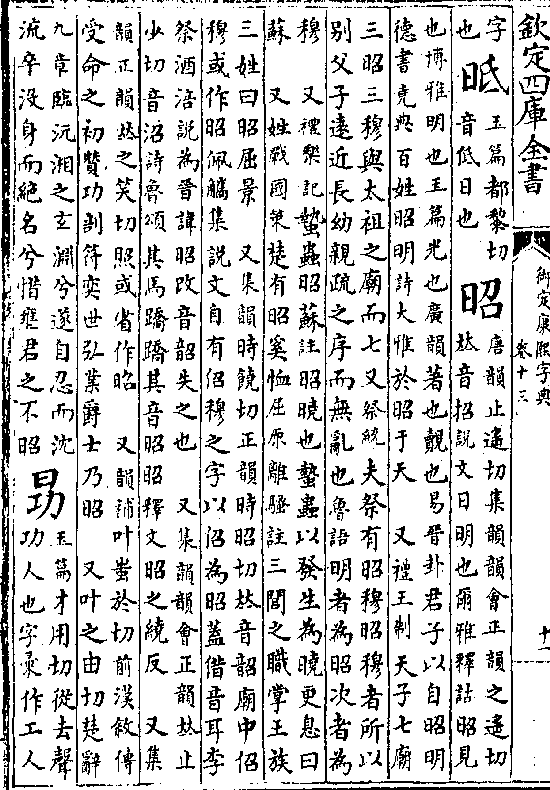 欽定四庫全書
御定康熙字典
卷十三
十一
字
也
玉篇都黎切
音低日也
昭
唐韻止遙切集韻韻會正韻之遙切
𠀤音招說文日明也爾雅釋詁昭見
也博雅明也玉篇光也廣韻著也覿也易晉卦君子以自昭明
德書堯典百姓昭明詩大雅於昭于天 又禮王制天子七廟
三昭三穆與太祖之廟而七又祭統夫祭有昭穆昭穆者所以
別父子遠近長幼親疏之序而無亂也魯語明者為昭次者為
穆 又禮樂記蟄蟲昭蘇註昭曉也蟄蟲以發生為曉更息曰
蘇 又姓戰國策楚有昭奚恤屈原離騷註三閭之職掌王族
三姓曰昭屈景 又集韻時饒切正韻時昭切𠀤音韶廟中佋
穆或作昭佩觿集說文自有佋穆之字以佋為昭蓋借音耳李
祭酒涪說為晉諱昭改音韶失之也 又集韻韻會正韻𠀤止
少切音沼詩魯頌其馬蹻蹻其音昭昭釋文昭之繞反 又集
韻正韻𠀤之笑切照或省作昭 又韻補叶蚩於切前漢敘傳
受命之初贊功剖符奕世弘業爵士乃昭 又叶之由切楚辭
九章臨沅湘之玄淵兮遂自忍而沈
流卒沒身而絕名兮惜壅君之不昭
玉篇才用切從去聲
功人也字彙作工人